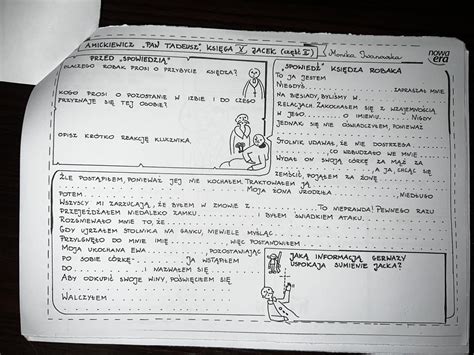 A. MICKIEWICZ „PAN TADEUSZ”, KSIĘGA X, JACEK (część II)
Monika Iwanowska
nowa
era
PRZED „SPOWIEDZIĄ”
DLACZEGO ROBAK PROSI O PRZYBYCIE KSIĘDZA?
KOGO PROSI O POZOSTANIE W IZBIE I DO CZEGO
PRZYZNAJE SIĘ TEJ OSOBIE?
OPISZ KRÓTKO REAKCJĘ KLUCZNIKA.
„SPOWIEDŹ” KSIĘDZA ROBAKA
TO JA JESTEM
NIEGDYŚ ZAPRASZAŁ MNIE
NA BIESIADY, BYLIŚMY W
RELACJACH. ZAKOCHAŁEM SIĘ Z WZAJEMNOŚCIĄ
W JEGO O IMIENIU NIGDY
JEDNAK SIĘ NIE OŚWIADCZYŁEM, PONIEWAŻ
STOLNIK UDAWAŁ, ŻE NIE DOSTRZEGA
CO WZBUDZAŁO WE MNIE
WYDAŁ ON SWOJĄ CÓRKĘ ZA MĄŻ ZA
A JA, CHCĄC SIĘ
ZEMŚCIĆ, POJĄŁEM ZA ŻONĘ
ŹLE POSTĄPIŁEM, PONIEWAŻ JEJ NIE KOCHAŁEM. TRAKTOWAŁEM JĄ
POTEM MOJA ŻONA URODZIŁA NIEDŁUGO
WSZYSCY MI ZARZUCAJĄ, ŻE BYŁEM W ZMOWIE Z TO NIEPRAWDA! PEWNEGO RAZU
PRZEJEŻDŻAŁEM NIEDALEKO ZAMKU BYŁEM ŚWIADKIEM ATAKU
ROZGNIEWAŁO MNIE TO, ŻE
GDY UJRZAŁEM STOLNIKA NA GANKU, NIEWIELE MYŚLĄC
PRZYLGNĘŁO DO MNIE IMIĘ WIĘC POSTANOWIŁEM
MOJA UKOCHANA EWA POZOSTAWIAJĄC
PO SOBIE CÓRKĘ JA WSTĄPIŁEM
DO I NAZWAŁEM SIĘ
ABY ODKUPIĆ SWOJE WINY, POŚWIĘCIŁEM SIĘ
WALCZYŁEM
JAKĄ INFORMACJĄ GERWAZY
USPOKAJA SUMIENIE JACKA?